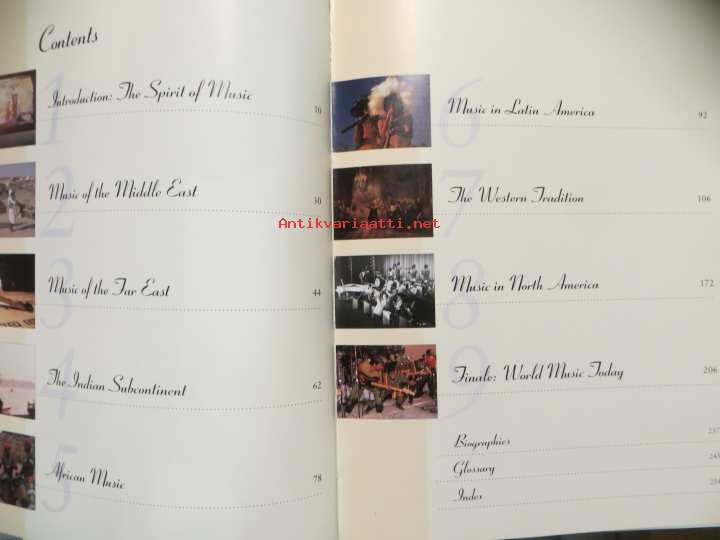 Contents
1
Introduction: The Spirit of Music 10
2
Music of the Middle East 30
3
Music of the Far East 44
4
The Indian Subcontinent 62
5
African Music 78
6
Music in Latin America 92
7
The Western Tradition 106
8
Music in North America 172
9
Finale: World Music Today 206
Biographies 237
Glossary
Index
Antikvariaatti.net